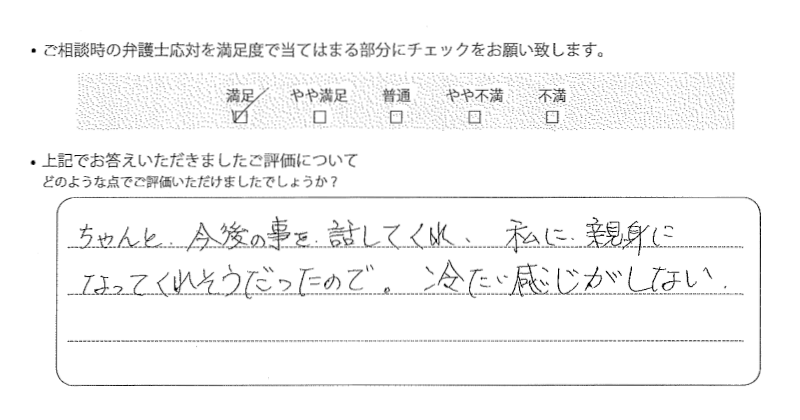 ・ご相談時の弁護士応対を満足度で当てはまる部分にチェックをお願い致します。
満足 やや満足 普通 やや不満 不満
・上記でお答えいただきましたご評価について
どのような点でご評価いただけましたでしょうか？
ちゃんと、今後の事を、話してくれ、私に、親身に
なってくれそうだったので。冷たい感じがしない.